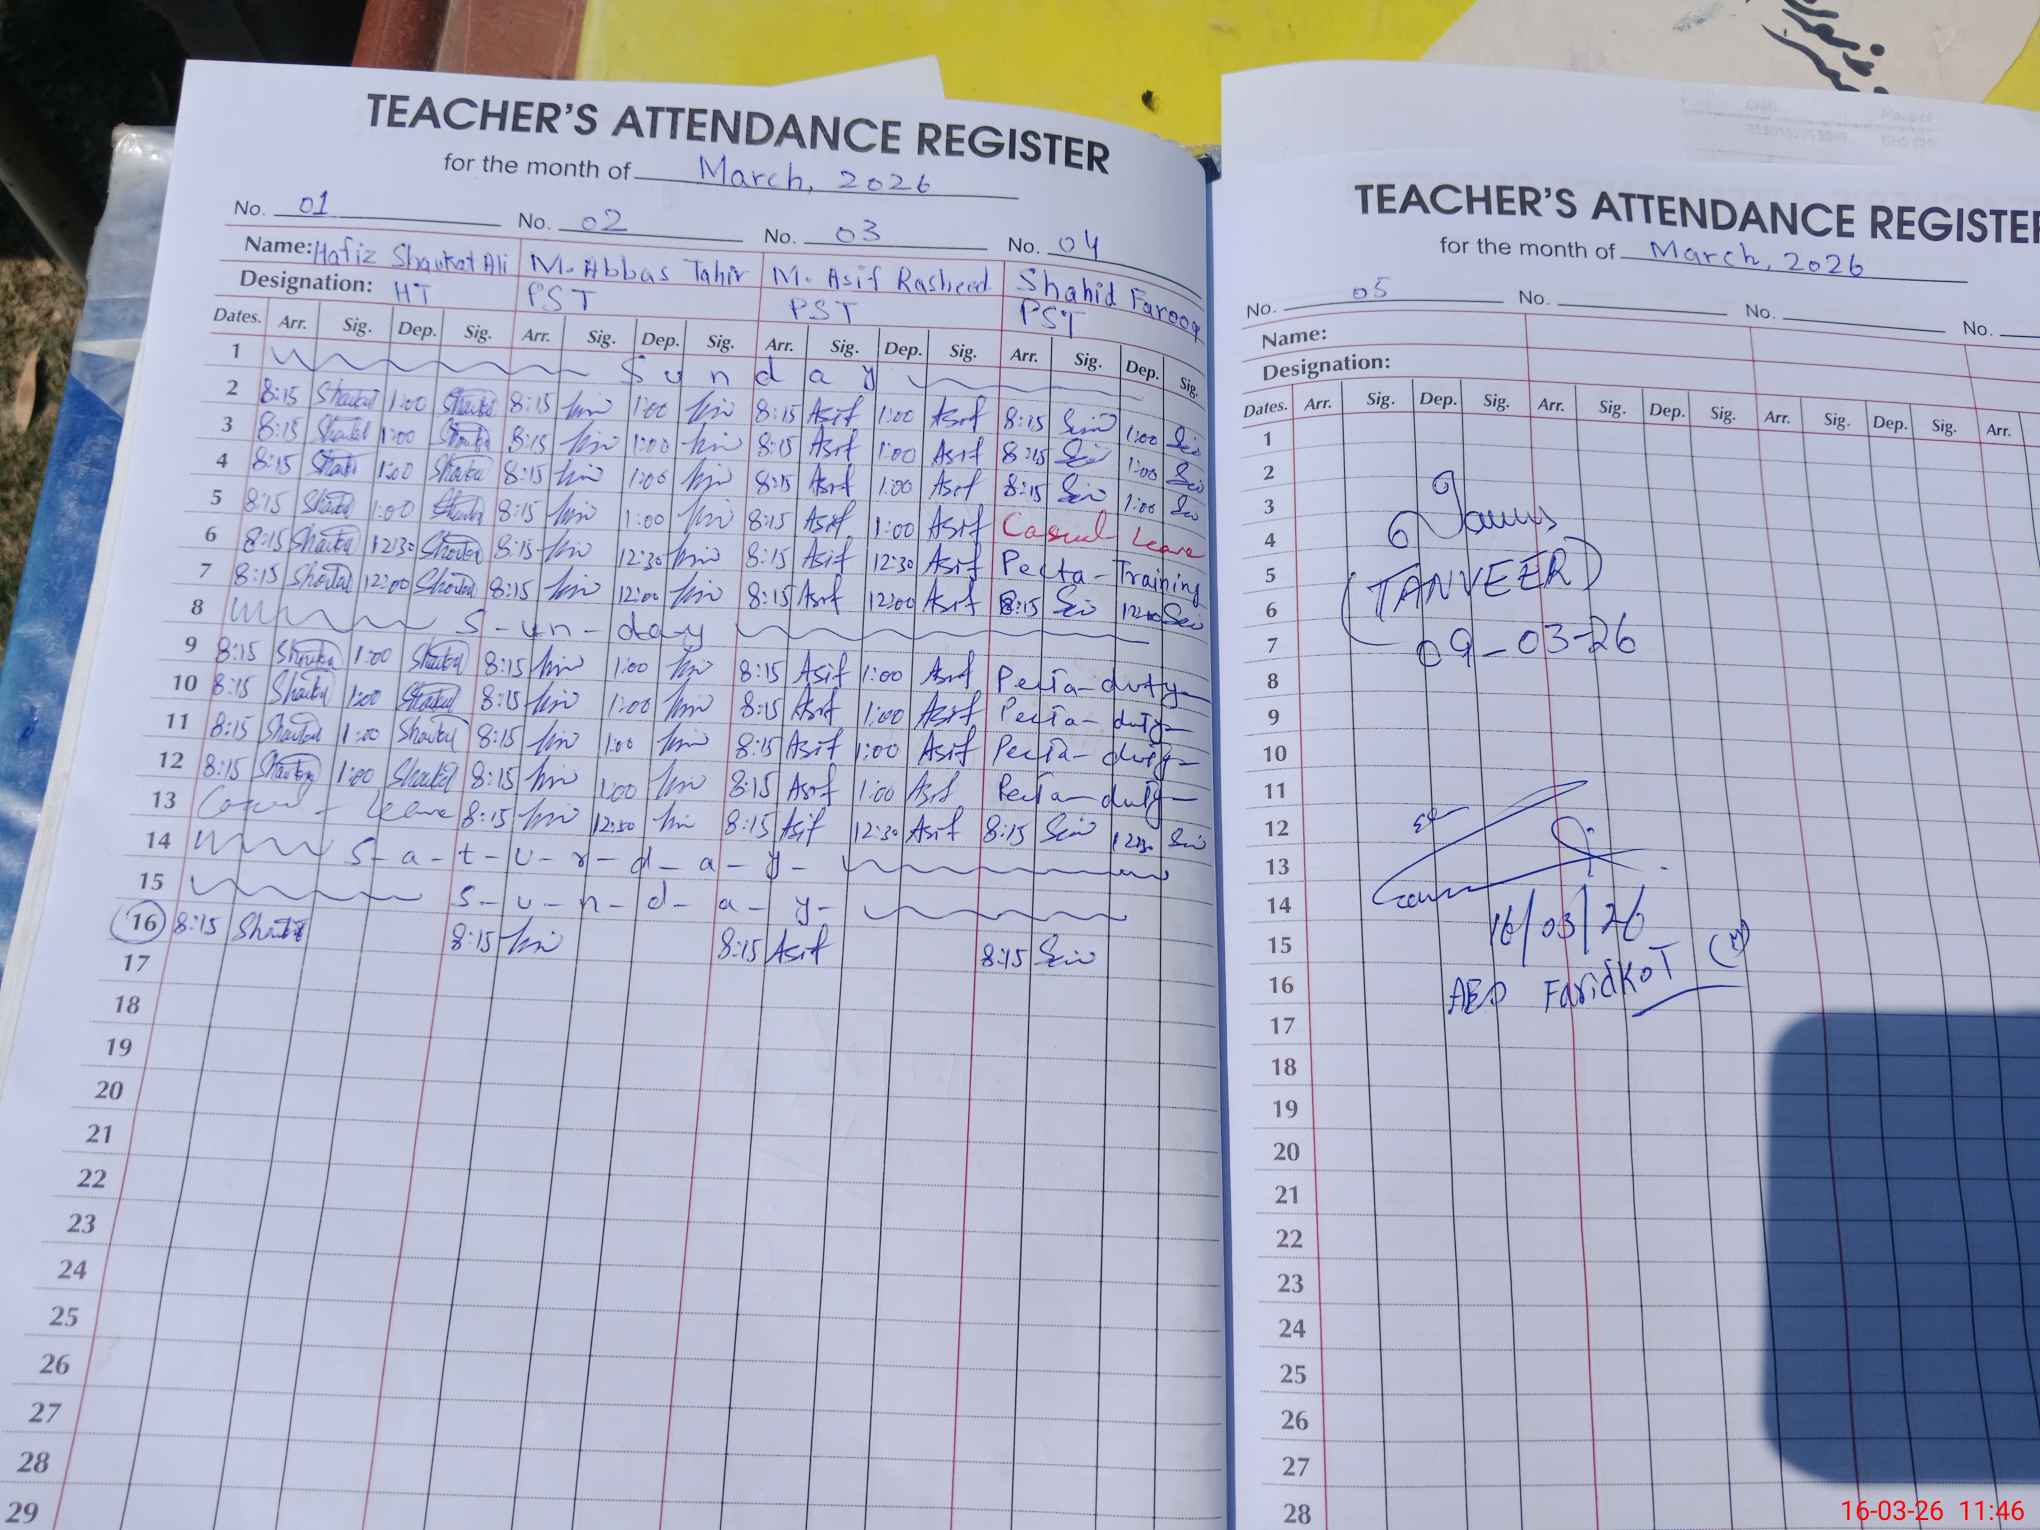 TEACHER'S ATTENDANCE REGISTER
for the month of March, 2026
No. 01 No. 02 No. 03 No. 04
Name: Hafiz Shaukat Ali M. Abbas Tahir M. Asif Rasheed Shahid Farooq
Designation: HT PST PST PST
Dates. Arr. Sig. Dep. Sig. Arr. Sig. Dep. Sig. Arr. Sig. Dep. Sig. Arr. Sig. Dep. Sig.
1 Sunday
2 8:15 Shaukat 1:00 Shaukat 8:15 1:00 8:15 Asif 1:00 Asif 8:15 1:00
3 8:15 Shaukat 1:00 Shaukat 8:15 1:00 8:15 Asif 1:00 Asif 8:15 1:00
4 8:15 Shaukat 1:00 Shaukat 8:15 1:00 8:15 Asif 1:00 Asif 8:15 1:00
5 8:15 Shaukat 1:00 Shaukat 8:15 1:00 8:15 Asif 1:00 Asif Casual Leave
6 8:15 Shaukat 12:30 Shaukat 8:15 12:30 8:15 Asif 12:30 Asif Pecta-Training
7 8:15 Shaukat 12:00 Shaukat 8:15 12:00 8:15 Asif 12:00 Asif 8:15 12:00
8 S-un-day
9 8:15 Shaukat 1:00 Shaukat 8:15 1:00 8:15 Asif 1:00 Asif Pecta-duty-
10 8:15 Shaukat 1:00 Shaukat 8:15 1:00 8:15 Asif 1:00 Asif Pecta-duty-
11 8:15 Shaukat 1:00 Shaukat 8:15 1:00 8:15 Asif 1:00 Asif Pecta-duty-
12 8:15 Shaukat 1:00 Shaukat 8:15 1:00 8:15 Asif 1:00 Asif Pecta-duty-
13 Casual - Leave 8:15 12:30 8:15 Asif 12:30 Asif 8:15 12:30
14 S-a-t-u-r-d-a-y-
15 S-u-n-d-a-y-
16 8:15 Shaukat 8:15 8:15 Asif 8:15
17
18
19
20
21
22
23
24
25
26
27
28
29
TEACHER'S ATTENDANCE REGISTER
for the month of March, 2026
No. 05 No. No. No.
Name:
Designation:
Dates. Arr. Sig. Dep. Sig. Arr. Sig. Dep. Sig. Arr. Sig. Dep. Sig. Arr.
1
2
3
4
5 (TANVEER)
6
7 09-03-26
8
9
10
11
12
13
14
15 16/03/26
16 AEO FaridKoT (M)
17
18
19
20
21
22
23
24
25
26
27
28
16-03-26 11:46